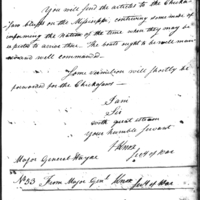 You will send the articles to the Chicka-
saw bluffs on the Mississippi, continuing some mode of
informing the Nation of the time when they may be
expected to arrive there. The boats ought to be well man-
ned and well commanded.
Some ammunition will shortly be
forwarded for the Chickasaws -
I am
Sir
with great esteem
your humble servant
H Knox
Secy of War
Major General Wayne
No. 33 From Major Genl. Knox Secy of War